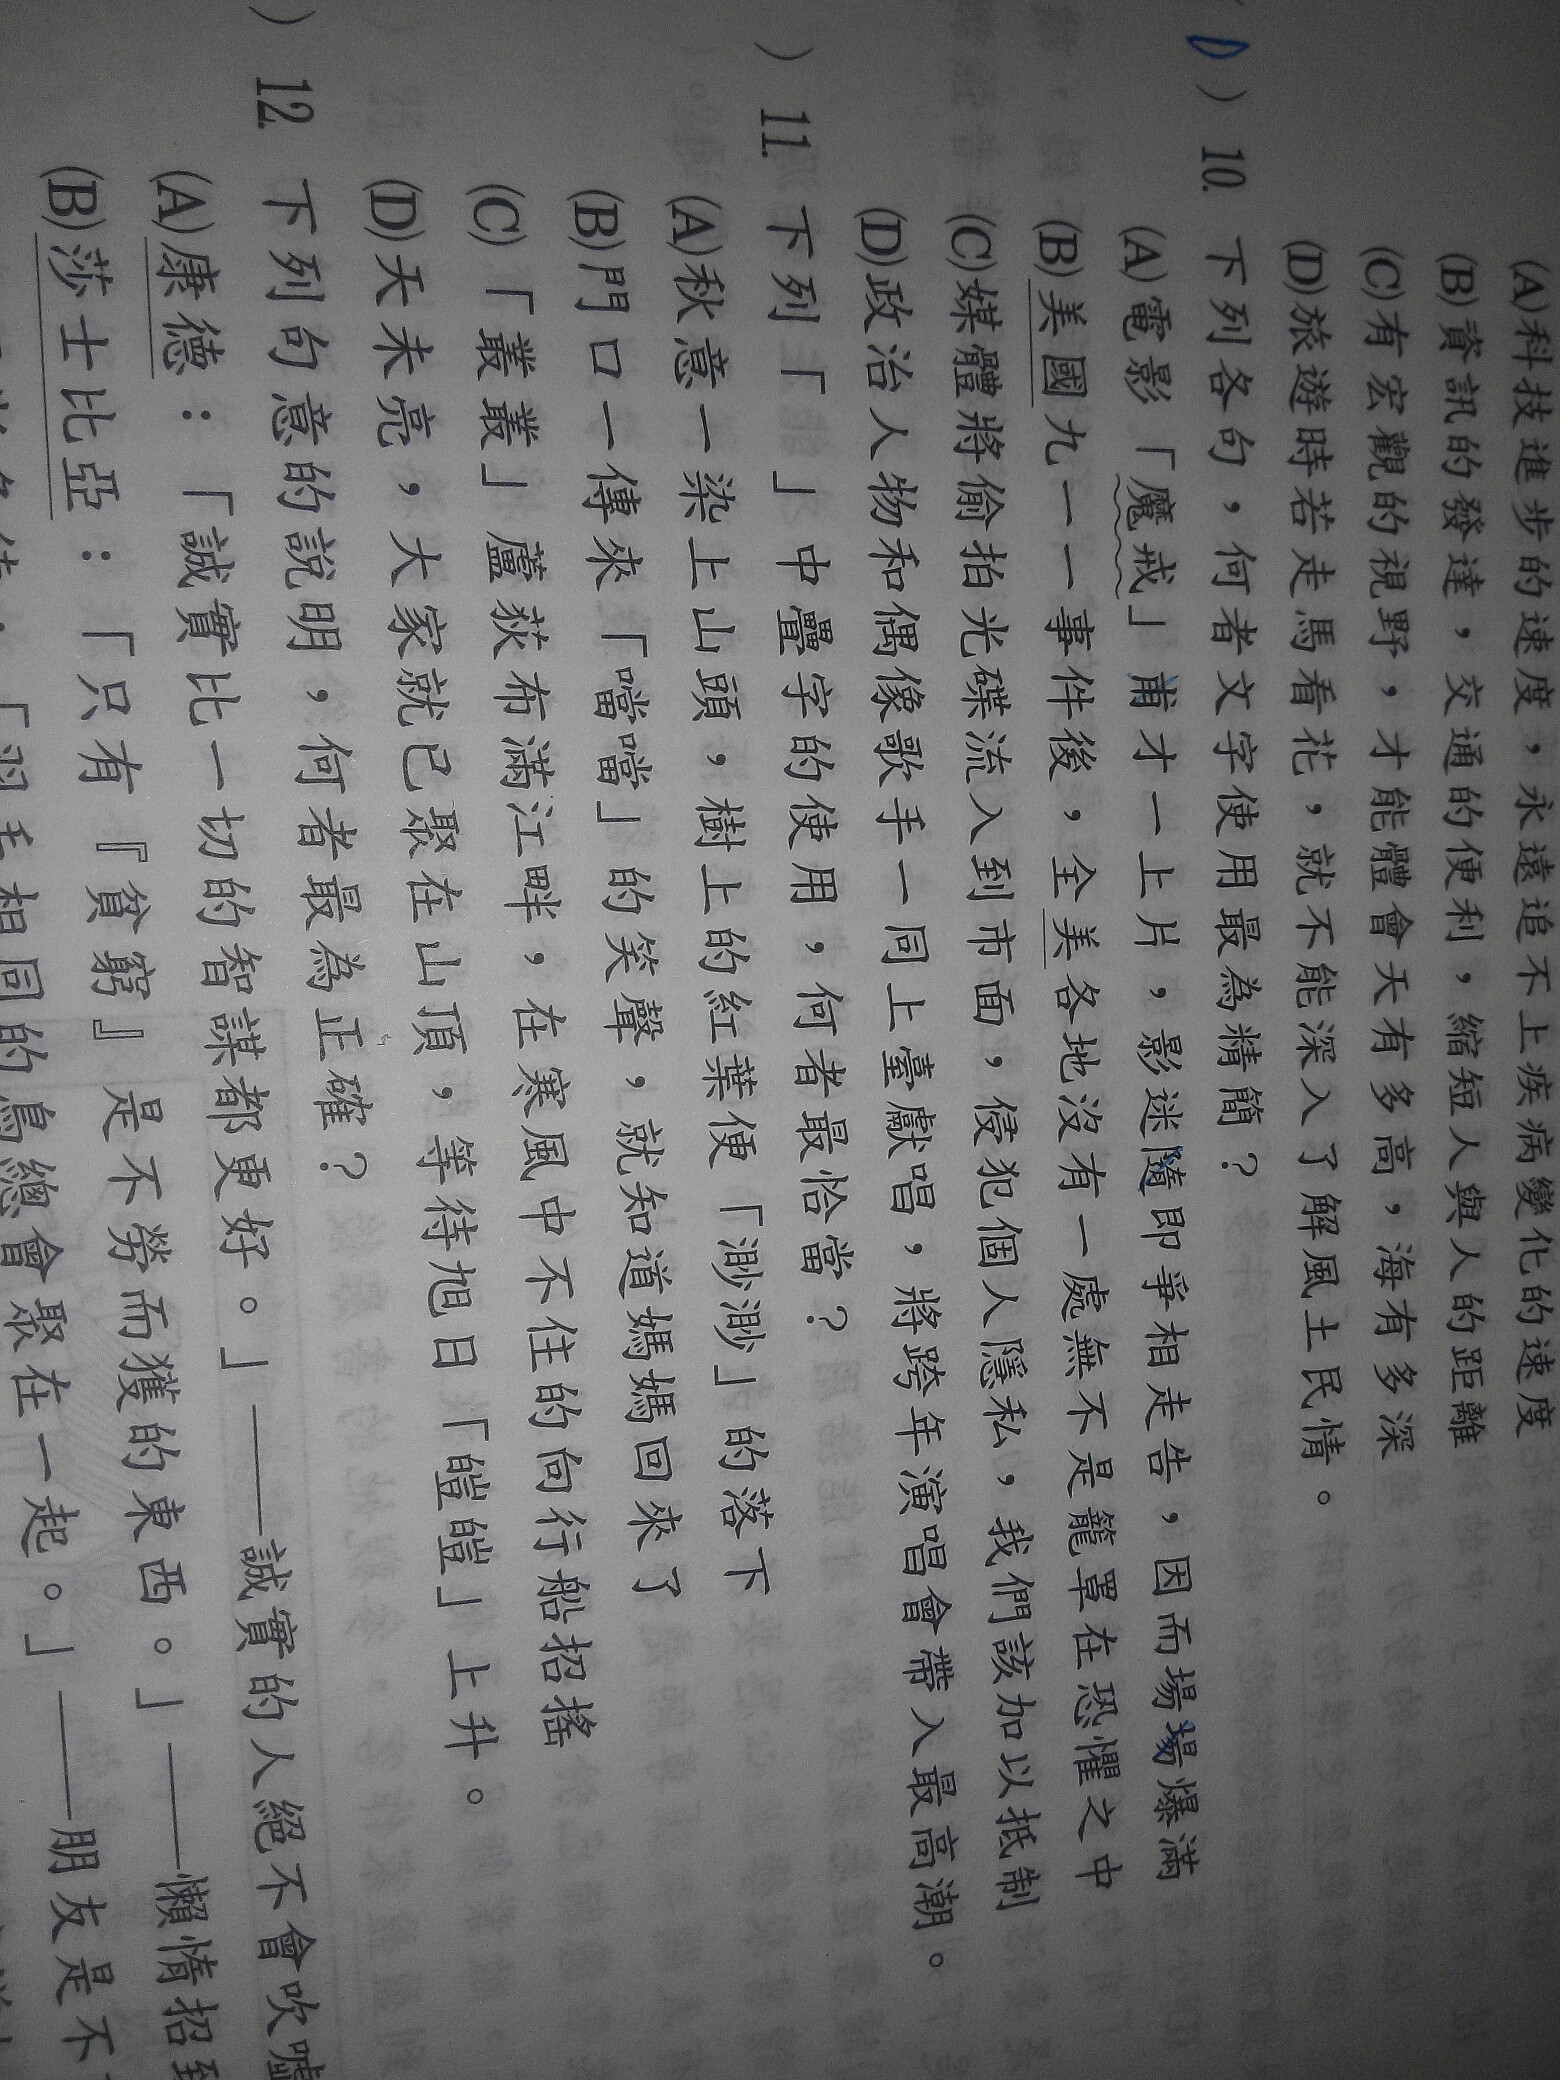 (A)科技進步的速度，永遠追不上疾病變化的速度
(B)資訊的發達，交通的便利，縮短人與人的距離
(C)有宏觀的視野，才能體會天有多高，海有多深
(D)旅遊時若走馬看花，就不能深入了解風土民情。
(D)10.下列各句，何者文字使用最為精簡？
(A)電影「魔戒」甫才一上片，影迷隨即爭相走告，因而場場爆滿
(B)美國九一一事件後，全美各地沒有一處無不是籠罩在恐懼之中
(C)媒體將偷拍光碟流入到市面，侵犯個人隱私，我們該加以抵制
(D)政治人物和偶像歌手一同上臺獻唱，將跨年演唱會帶入最高潮。
)11.下列「」中疊字的使用，何者最恰當？
(A)秋意一染上山頭，樹上的紅葉便「渺渺」的落下
(B)門口一傳來「噹噹」的笑聲，就知道媽媽回來了
(C)「叢叢」蘆荻布滿江畔，在寒風中不住的向行船招搖
(D)天未亮，大家就已聚在山頂，等待旭日「皚皚」上升。
)12.下列句意的說明，何者最為正確？
(A)康德：「誠實比一切的智謀都更好。」——誠實的人絕不會吹噓
(B)莎士比亞：「只有『貧窮』是不勞而獲的東西。」——懶惰招到
「羽毛相同的鳥總會聚在一起。」——朋友是不